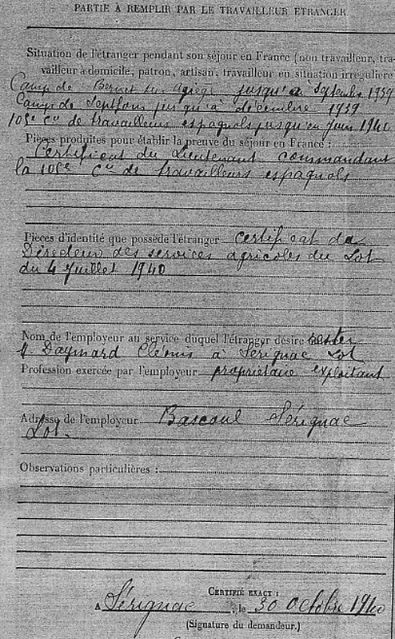 PARTIE À REMPLIR PAR LE TRAVAILLEUR ÉTRANGER
Situation de l'étranger pendant son séjour en France (non travailleur, tra-
vailleur à domicile, patron, artisan, travailleur en situation irrégulière
Camp de Bernet sur Ariège jusqu'à Septembre 1939
Camp de Septfons jusqu'à décembre 1939
105e Cie de travailleurs espagnols jusqu'en Juin 1940
Pièces produites pour établir la preuve du séjour en France :
Certificat du Lieutenant commandant
la 105e Cie de travailleurs espagnols
Pièces d'identité que possède l'étranger certificat du
Directeur des services agricoles du Lot
du 4 Juillet 1940
Nom de l'employeur au service duquel l'étranger désire rester
M. Daynard Cléonis à Sérignac Lot
Profession exercée par l'employeur propriétaire exploitant
Adresse de l'employeur Bascoul Sérignac
Lot.
Observations particulières :
CERTIFIÉ EXACT :
A Sérignac, le 30 Octobre 1940
(Signature du demandeur.)